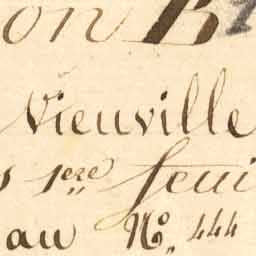 on B
Vieuville
s 1ere feui
au No. 444